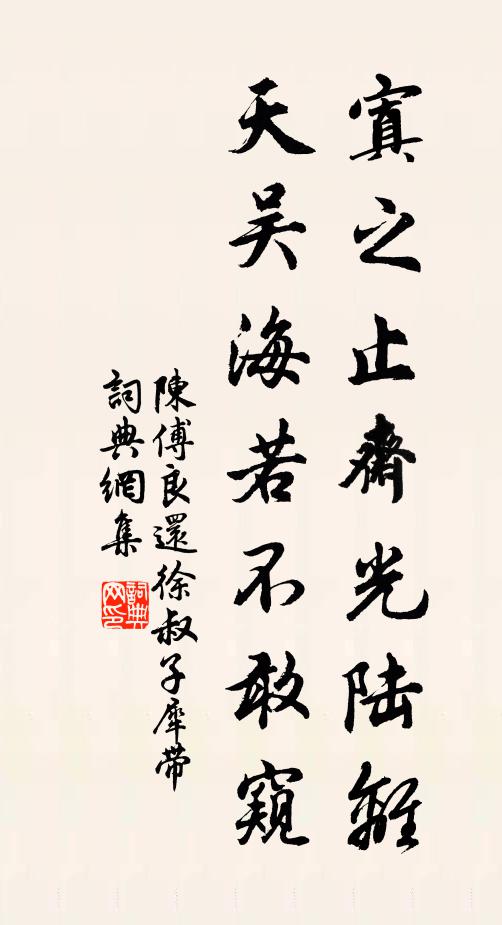 寘之止齋光陸離
天吴海若不敢窺
陳傅良還徐叔子犀带
詞典網集
詞典网印